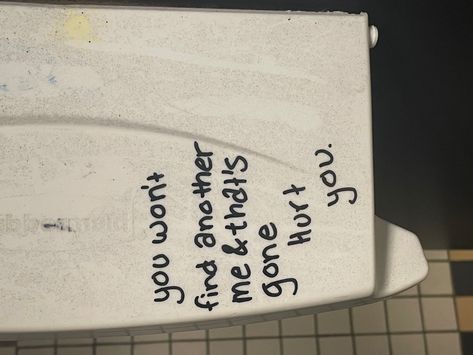 you won't
find another
me & that's
gone
Hurt
you.